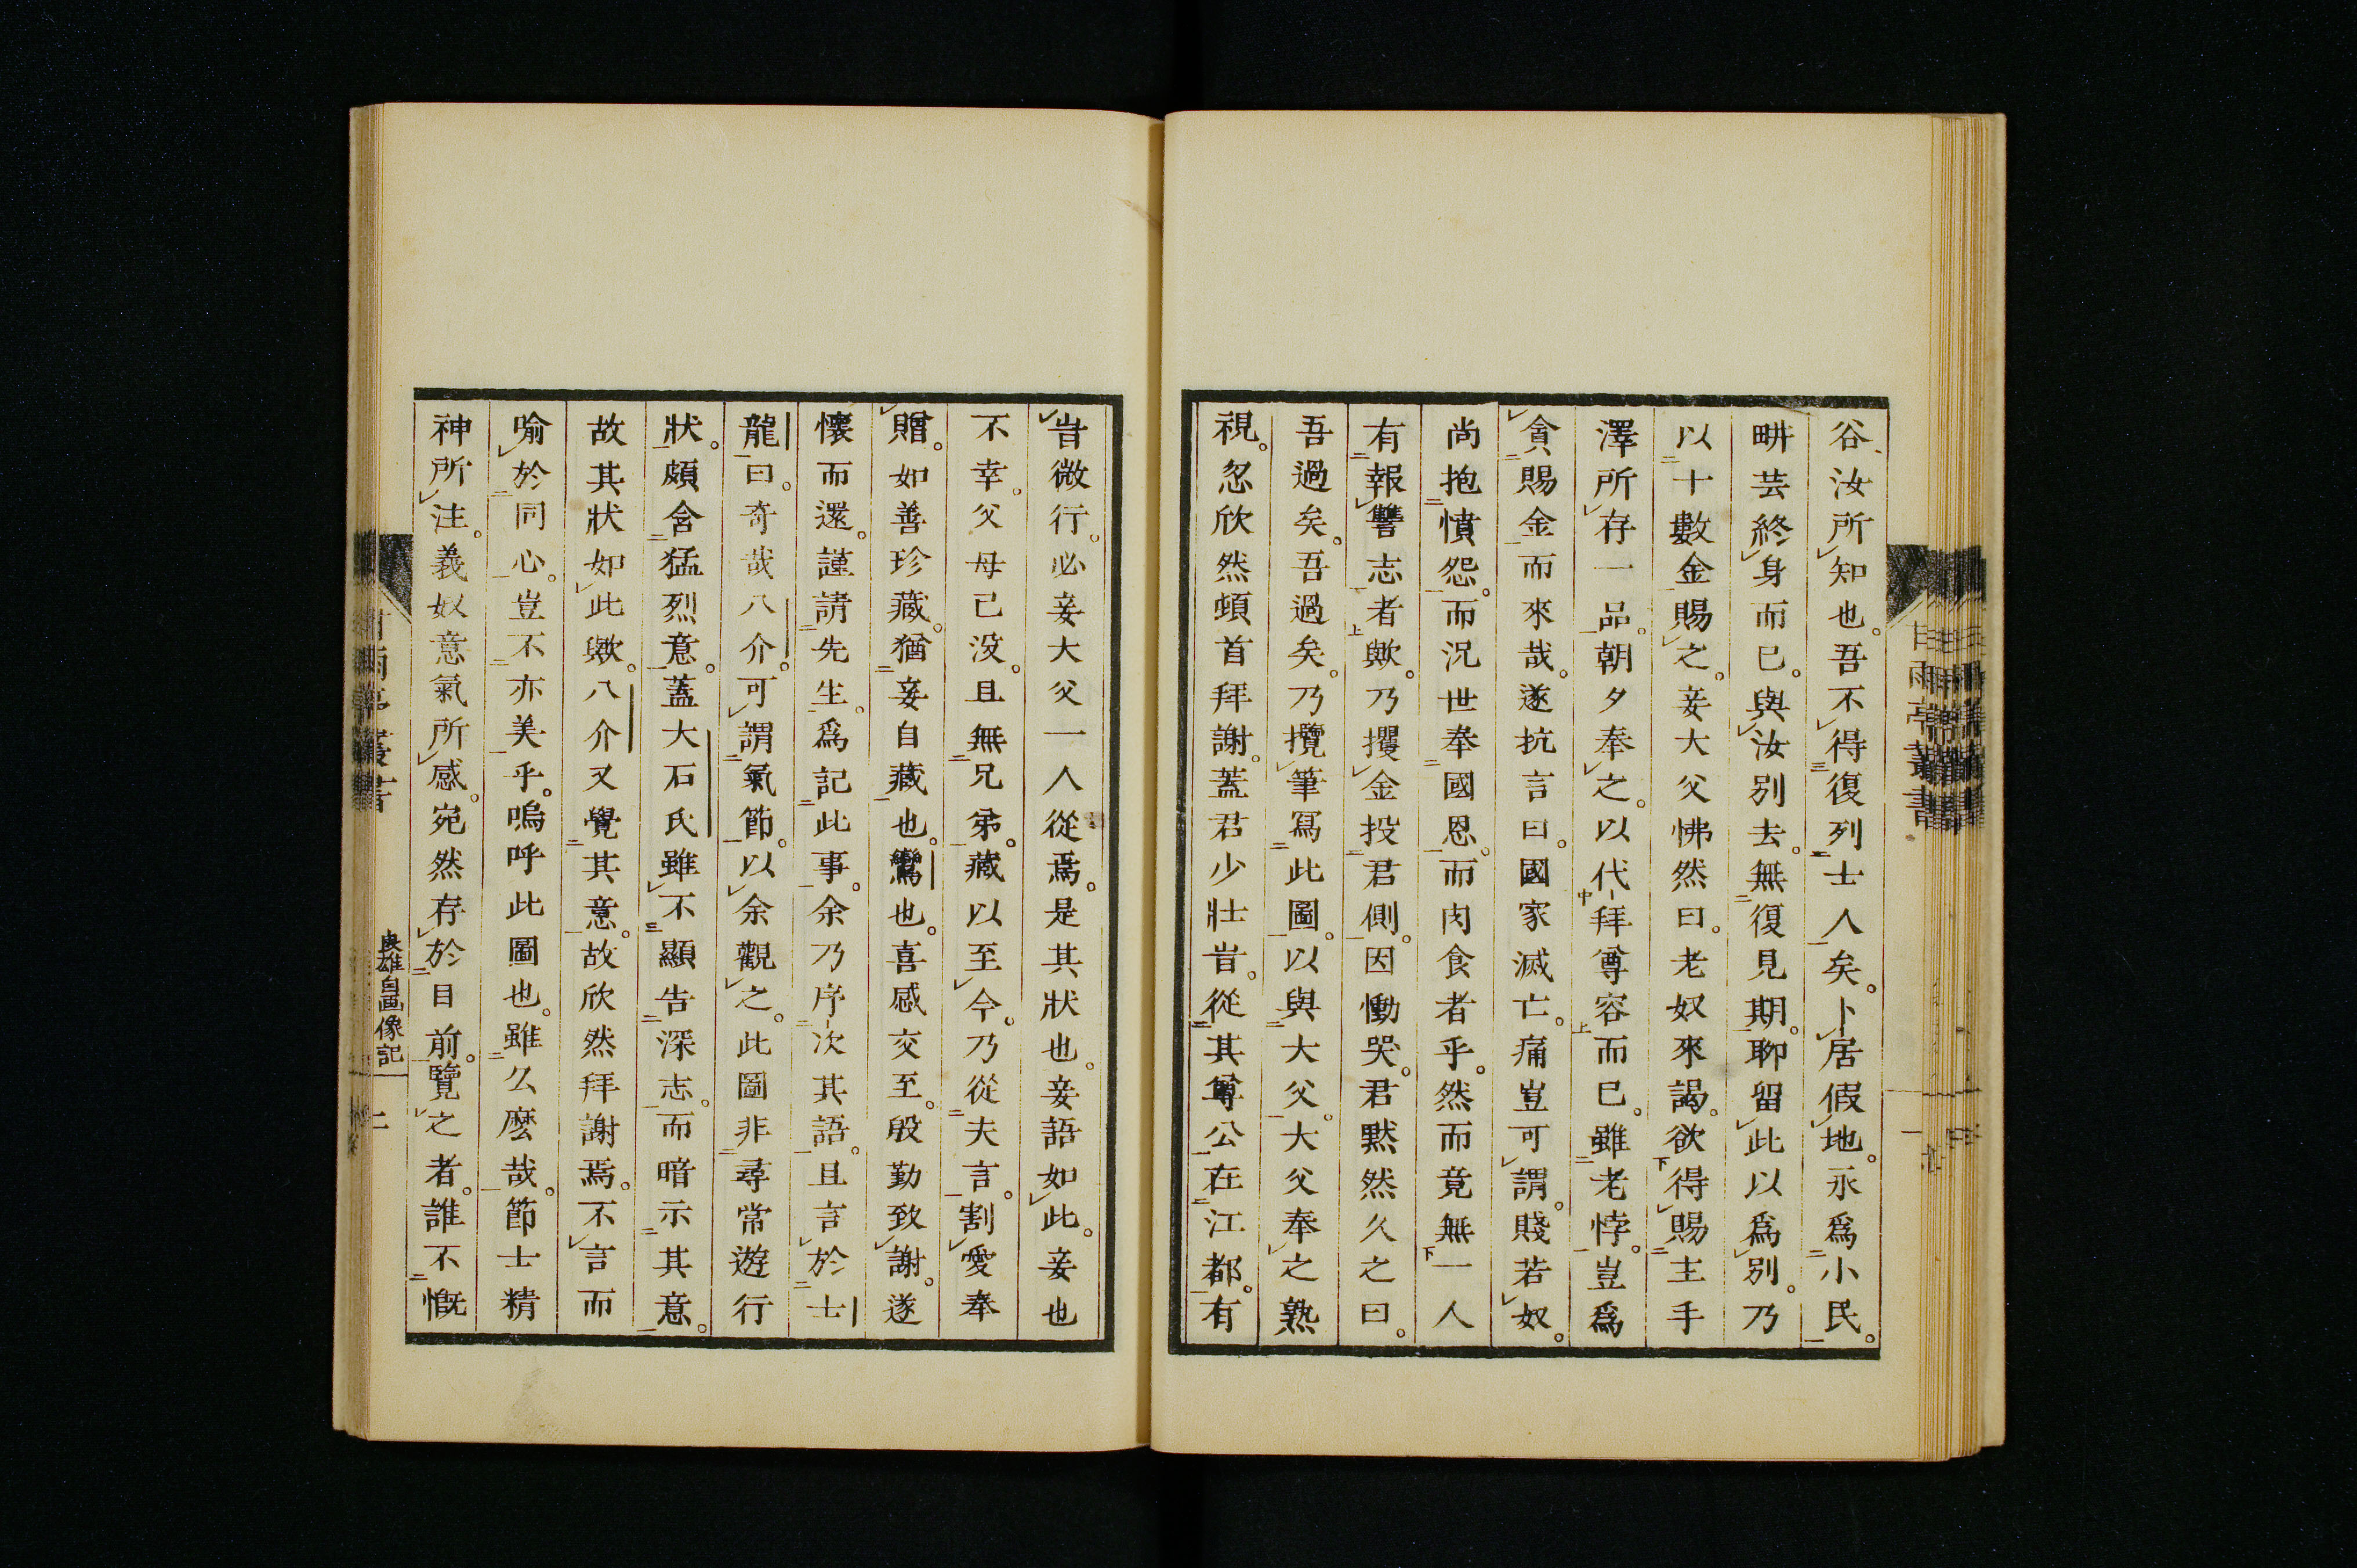 谷汝所知也。吾不得復列士人矣。卜居假地。永爲小民。
畊芸終身而已。與汝別去。無復見期。聊留此以爲別。乃
以十數金賜之。妾大父怫然曰。老奴來謁。欲得賜主手
澤所存一品。朝夕奉之。以代拜尊容而已。雖老悖。豈爲
貪賜金而來哉。遂抗言曰。國家滅亡。痛豈可謂。賤若奴。
尚抱憤怨。而況世奉國恩。而肉食者乎。然而竟無一人
有報讐志者歟。乃攫金投君側。因慟哭。君默然久之曰。
吾過矣。吾過矣。乃攬筆寫此圖。以與大父。大父奉之熟
視。忽欣然頓首拜謝。蓋君少壯旹。從其尊公在江都。有
旹微行。必妾大父一人從焉。是其狀也。妾語如此。妾也
不幸。父母已没。且無兄弟。藏以至今。乃從夫言。割愛奉
贈。如善珍藏。猶妾自藏也。鸞也。喜感交至。殷勤致謝。遂
懷而還。謹請先生。爲記此事。余乃序次其語。且言於士
龍曰。奇哉八介。可謂氣節。以余觀之。此圖非尋常遊行
狀。頗含猛烈意。蓋大石氏雖不顯告深志。而暗示其意。
故其狀如此歟。八介又覺其意。故欣然拜謝焉。不言而
喻於同心。豈不亦美乎。嗚呼此圖也。雖么麼哉。節士精
神所注。義奴意氣所感。宛然存於目前。覽之者。誰不慨
甘雨亭叢書
良雄自画像記
二
甘雨亭叢書